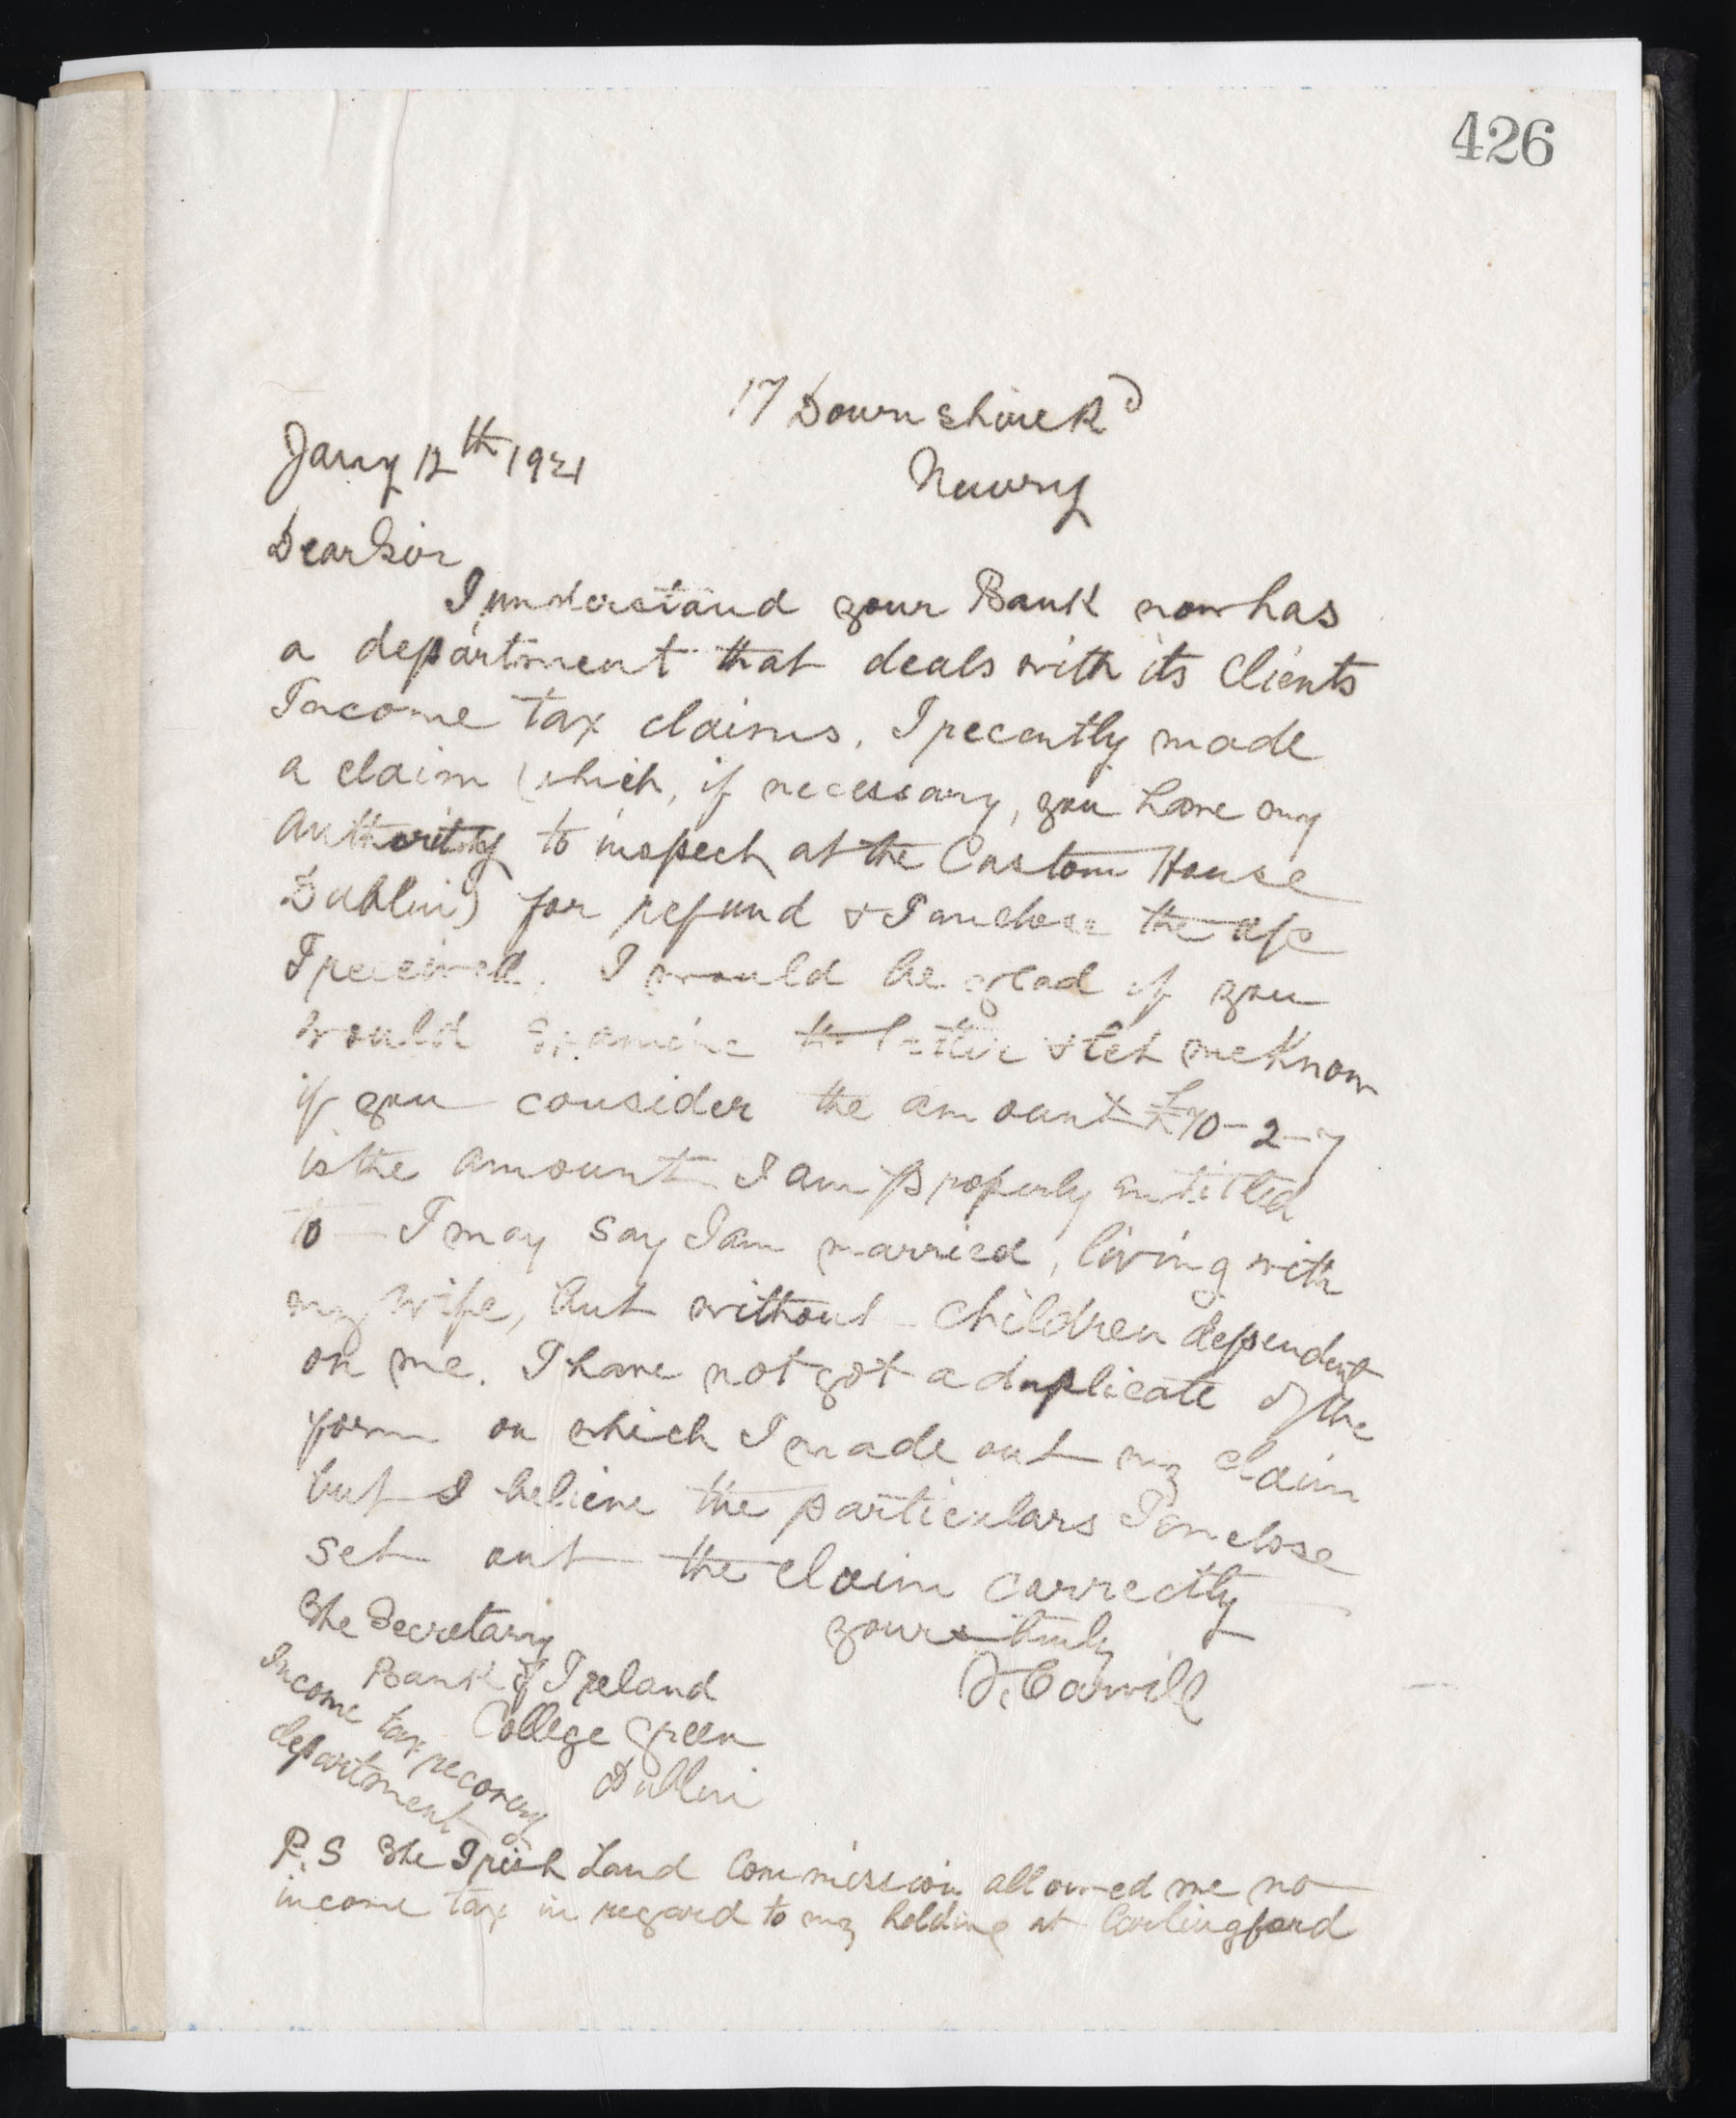 426
17 Downshire Rd
Jany 12th 1921
Newry
Dear Sir
I understand your Bank now has
a department that deals with its clients
Income tax claims. I recently made
a claim (which, if necessary, you have my
authority to inspect at the Custom House
Dublin) for refund & I enclose the
I received. I would be glad if you
would examine the latter & let me know
if you consider the amount £70-2-7
is the amount I am properly entitled
to - I may say I am married, living with
my wife, but without children dependent
on me. I have not got a duplicate of the
form on which I made out my claim
but I believe the particulars I enclose
set out the claim correctly
yours truly
The Secretary
J. Carvill
Bank of Ireland
Income tax recovery
department
College Green
Dublin
P.S The Irish Land Commission allowed me no
income tax in regard to my holding at Carlingford